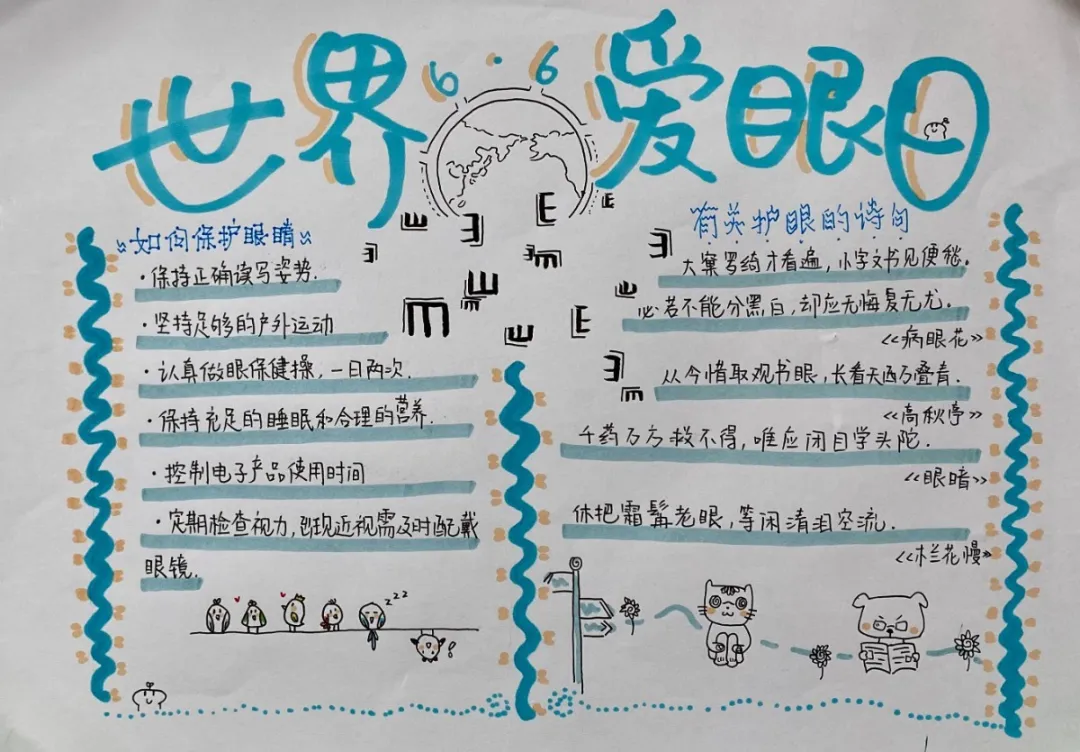 世界爱眼日
6·6
如何保护眼睛
·保持正确读写姿势.
·坚持足够的户外运动
·认真做眼保健操,一日两次.
·保持充足的睡眠和合理的营养.
·控制电子产品使用时间
·定期检查视力,出现近视需及时配戴
眼镜.
zzz
?
有关护眼的诗句
大窠罗绮才看遍,小字文书见便愁.
必若不能分黑白,却应无悔复无尤.
《病眼花》
从今惜取观书眼,长看天西万叠青.
《高秋亭》
千药万方救不得,唯应闭目学头陀.
《眼暗》
休把霜髯老眼,等闲清泪空流.
《木兰花慢》